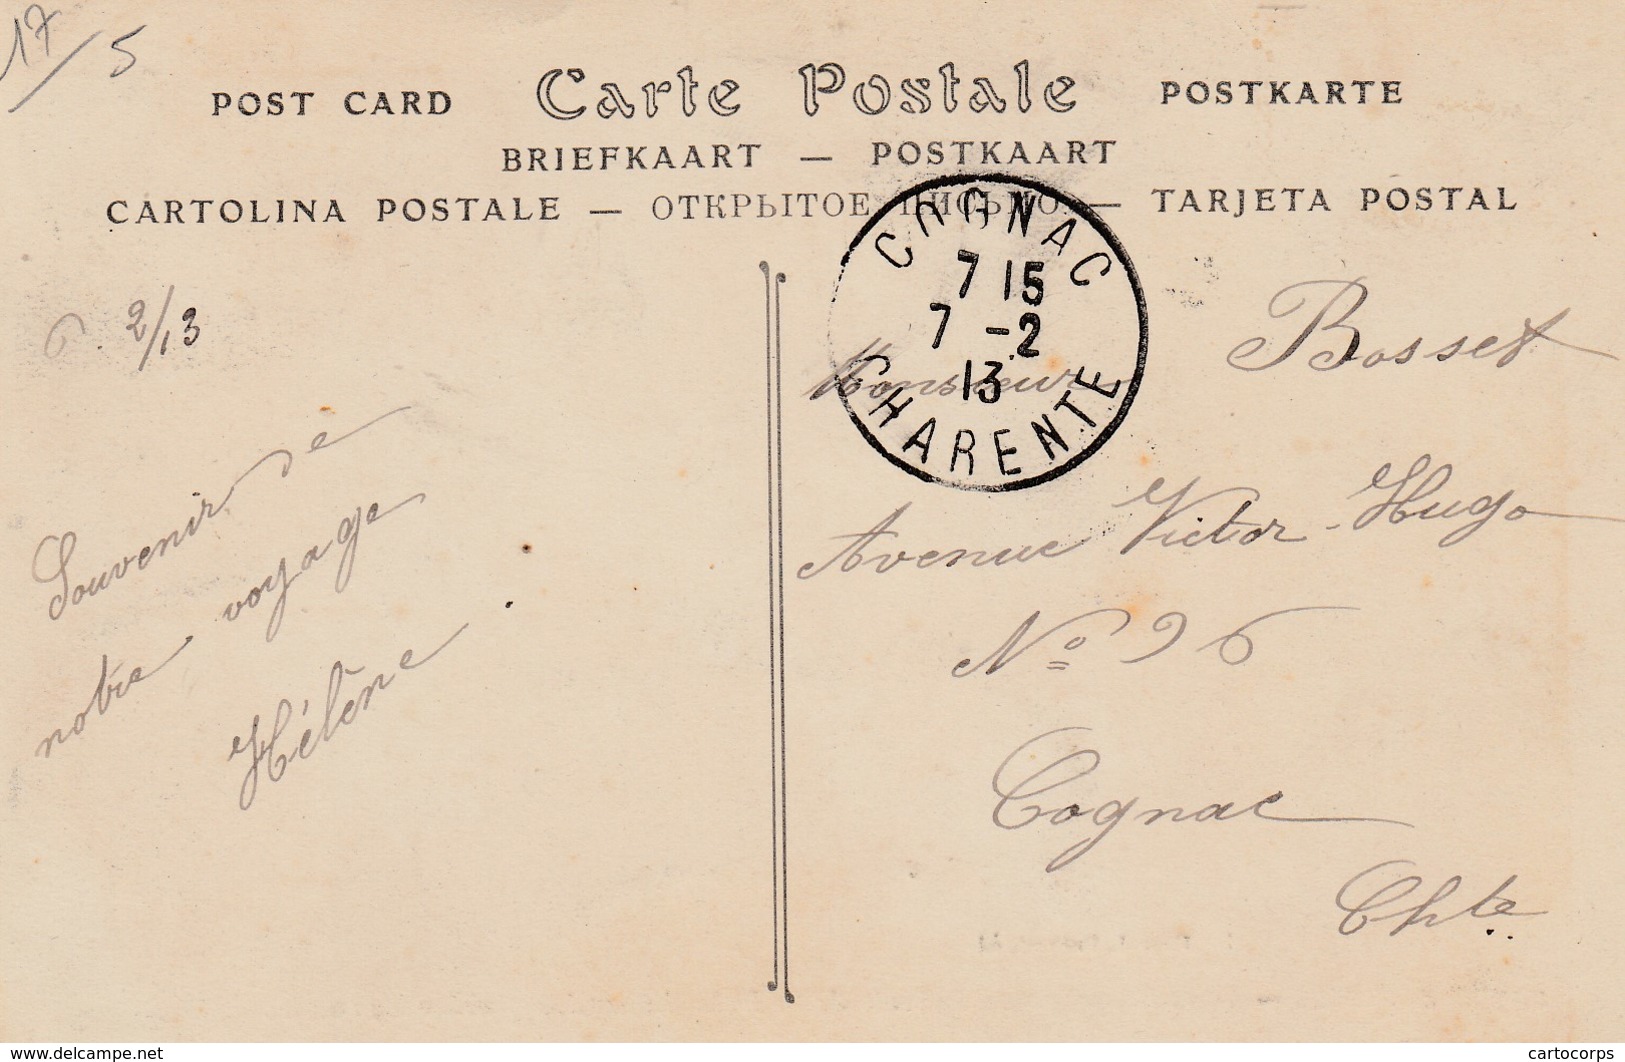 17/5
POST CARD Carte Postale POSTKARTE
BRIEFKAART — POSTKAART
CARTOLINA POSTALE — ОТКРЫТОЕ ПИСЬМО — TARJETA POSTAL
COGNAC
7 15
7 -2
13
CHARENTE
6. 2/13
Souvenir de
notre voyage
Hélène
Monsieur Bosset
Avenue Victor-Hugo
No 96
Cognac
Chte
www.delcampe.net
cartocorps